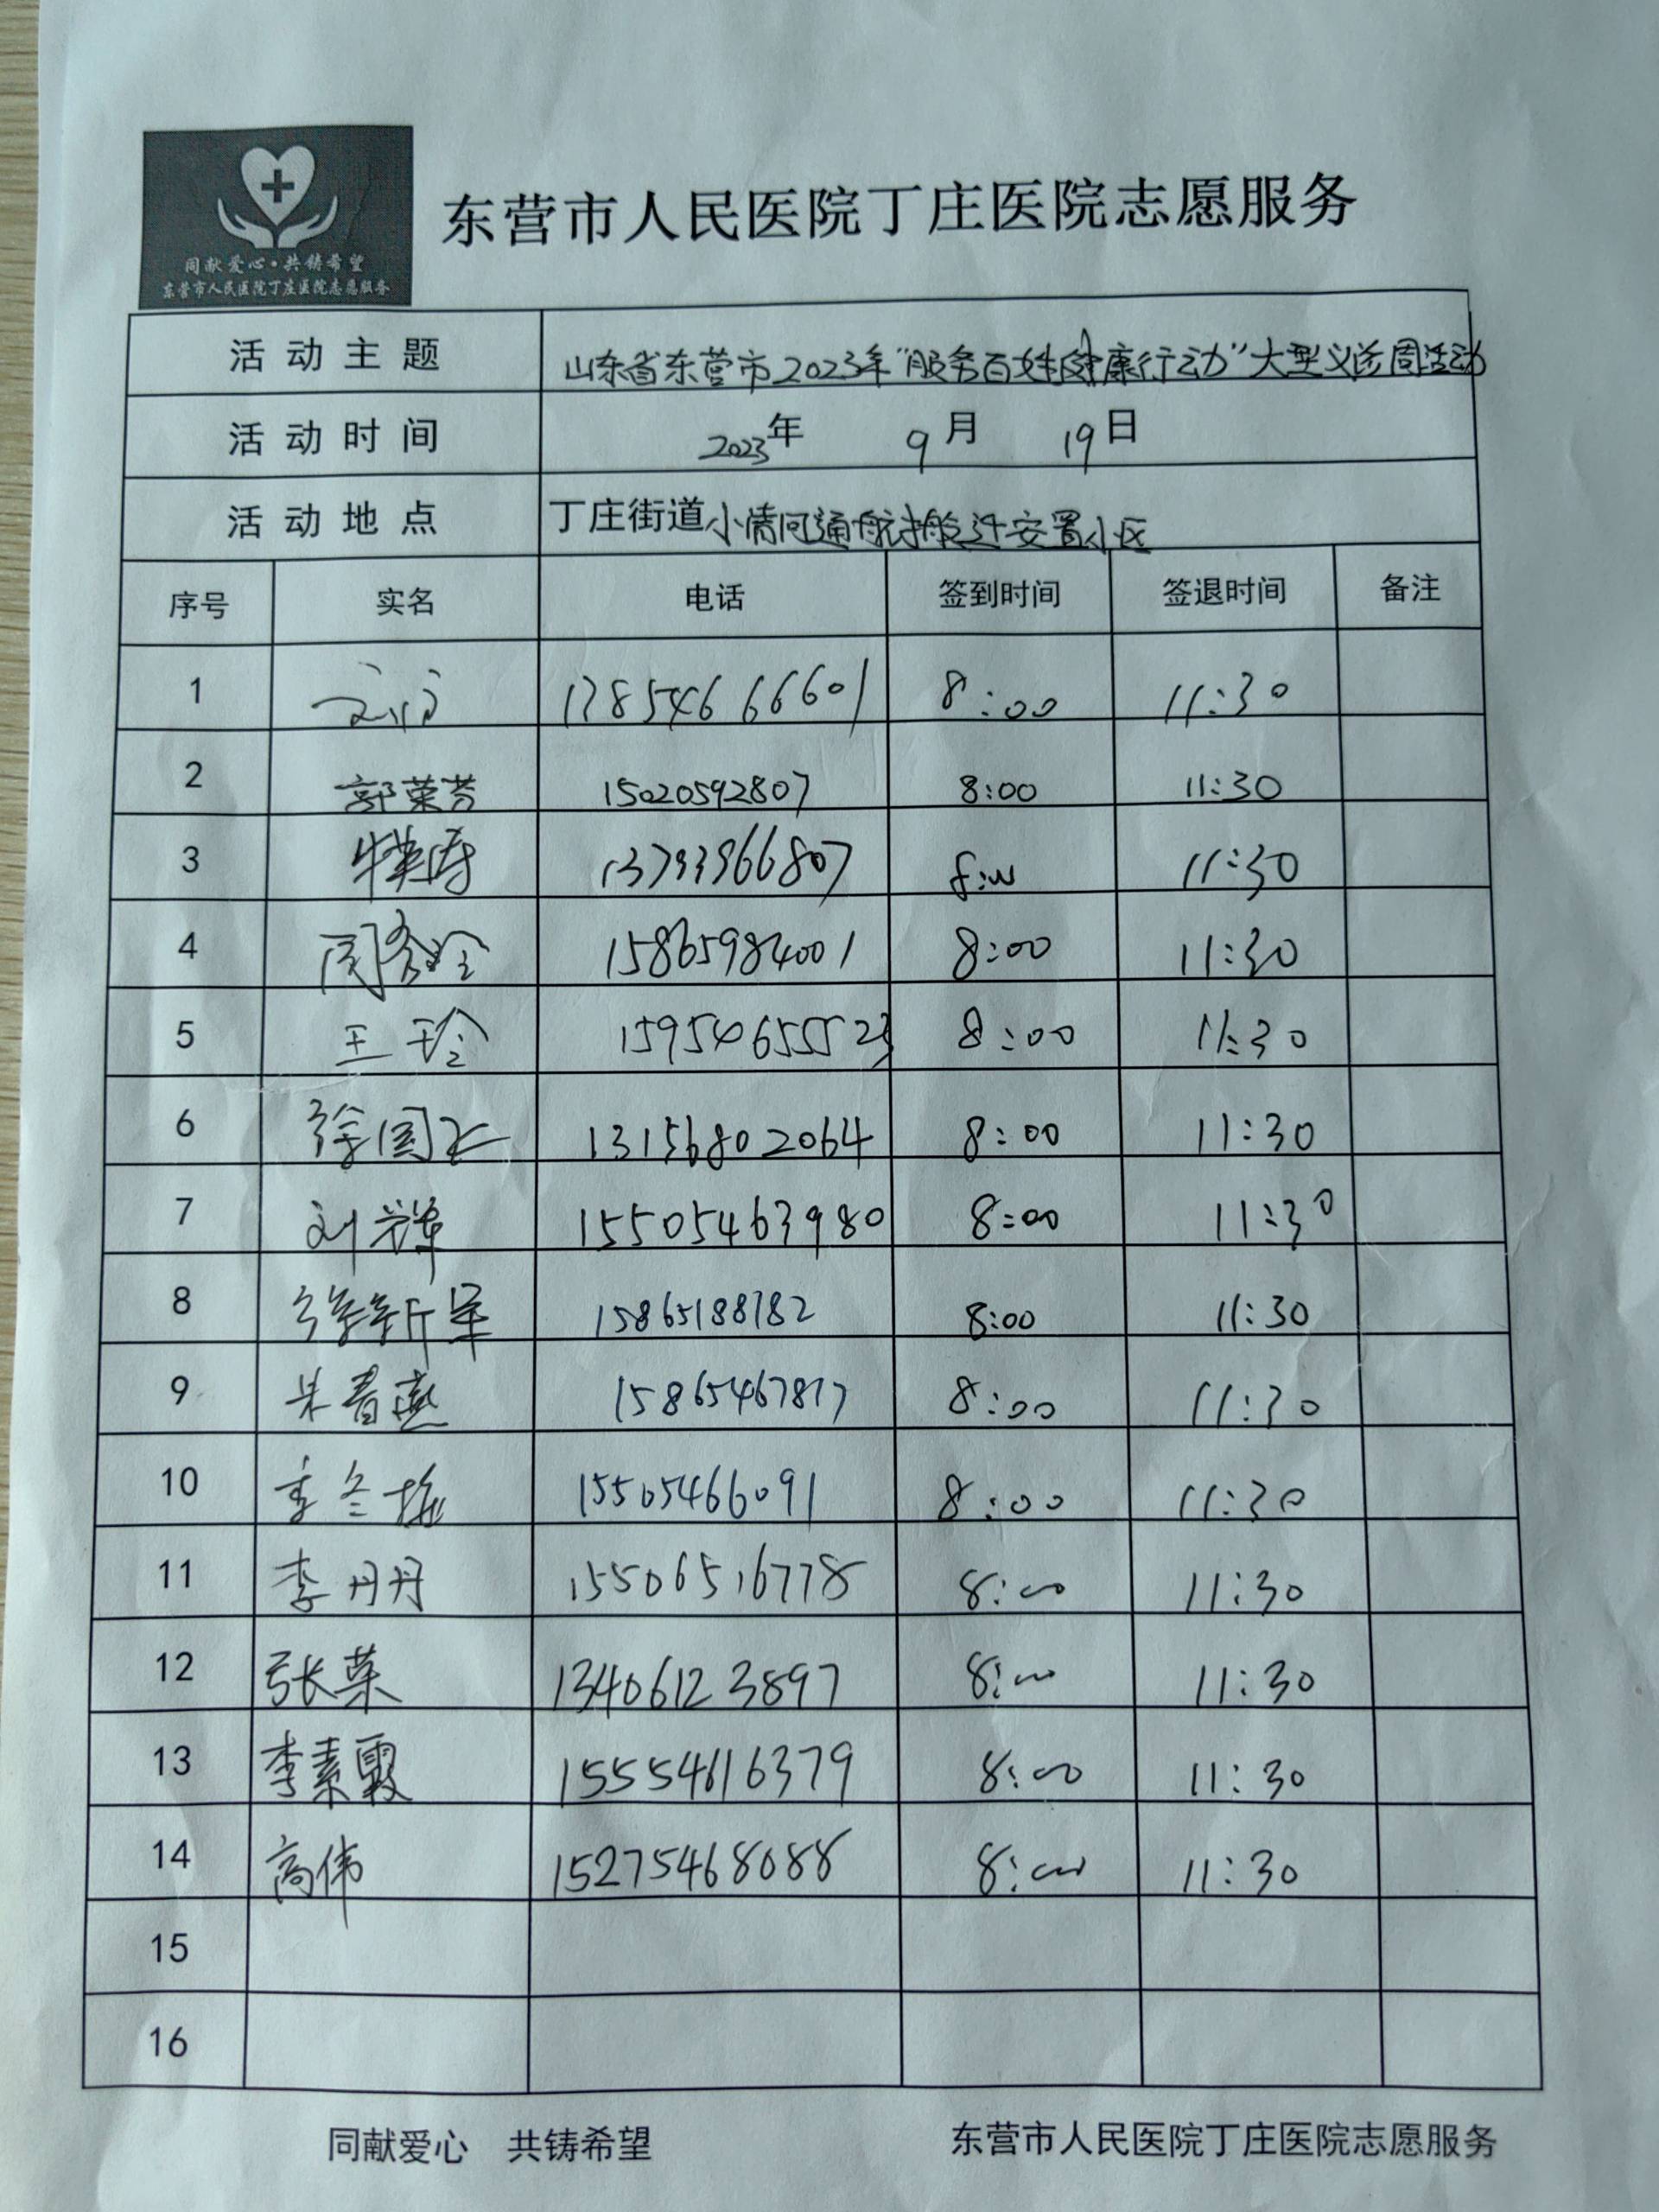 同献爱心·共铸希望
东营市人民医院丁庄医院志愿服务
东营市人民医院丁庄医院志愿服务
活动主题 山东省东营市2023年“服务百姓健康行动”大型义诊周活动
活动时间 2023年 9月 19日
活动地点 丁庄街道小清河通航搬迁安置小区
序号 实名 电话 签到时间 签退时间 备注
1 17854666601 8:00 11:30
2 郭荣芳 15020592807 8:00 11:30
3 13793966807 8:00 11:30
4 15865984001 8:00 11:30
5 王玲 15954655523 8:00 11:30
6 13156802064 8:00 11:30
7 刘辉 15505463980 8:00 11:30
8 15865188782 8:00 11:30
9 朱春燕 15865467817 8:00 11:30
10 李冬梅 15505466091 8:00 11:30
11 李丹丹 15506516778 8:00 11:30
12 张荣 13406123897 8:00 11:30
13 李素霞 15554616379 8:00 11:30
14 高伟 15275468088 8:00 11:30
15
16
同献爱心 共铸希望 东营市人民医院丁庄医院志愿服务